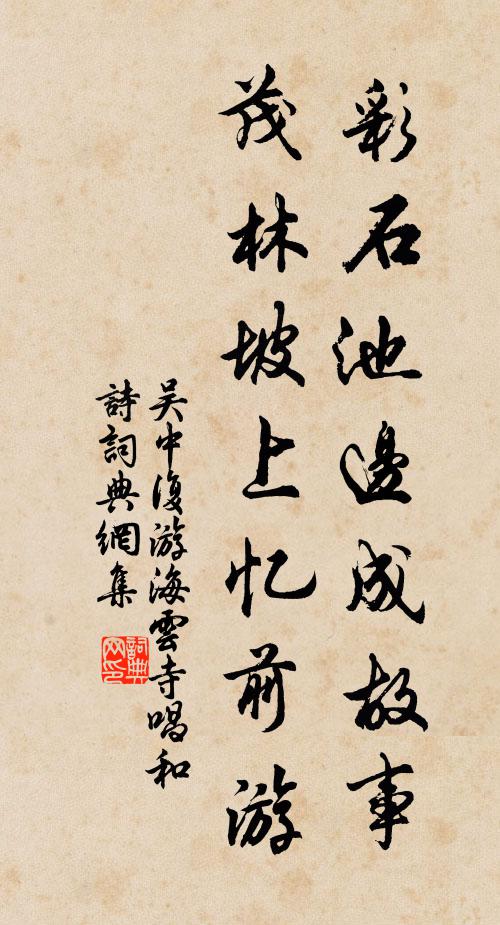 彩石池邊成故事
茂林坡上忆前游
吴中復游海雲寺唱和
詩詞典網集
詞典网印